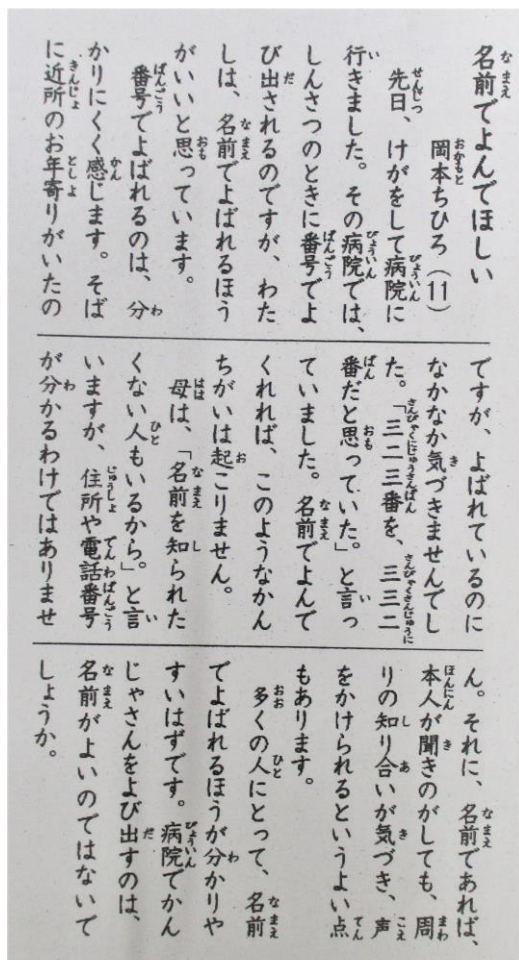 名前でよんでほしい
岡本ちひろ（11）
先日、けがをして病院に
行きました。その病院では、
しんさつのときに番号でよ
び出されるのですが、わた
しは、名前でよばれるほう
がいいと思っています。
番号でよばれるのは、分
かりにくく感じます。そば
に近所のお年寄りがいたの
ですが、よばれているのに
なかなか気づきませんでし
た。「三二三番を、三三二
番だと思っていた。」と言っ
ていました。名前でよんで
くれれば、このようなかん
ちがいは起こりません。
母は、「名前を知られた
くない人もいるから。」と言
いますが、住所や電話番号
が分かるわけではありませ
ん。それに、名前であれば、
本人が聞きのがしても、周
りの知り合いが気づき、声
をかけられるというよい点
もあります。
多くの人にとって、名前
でよばれるほうが分かりや
すいはずです。病院でかん
じゃさんをよび出すのは、
名前がよいのではないで
しょうか。